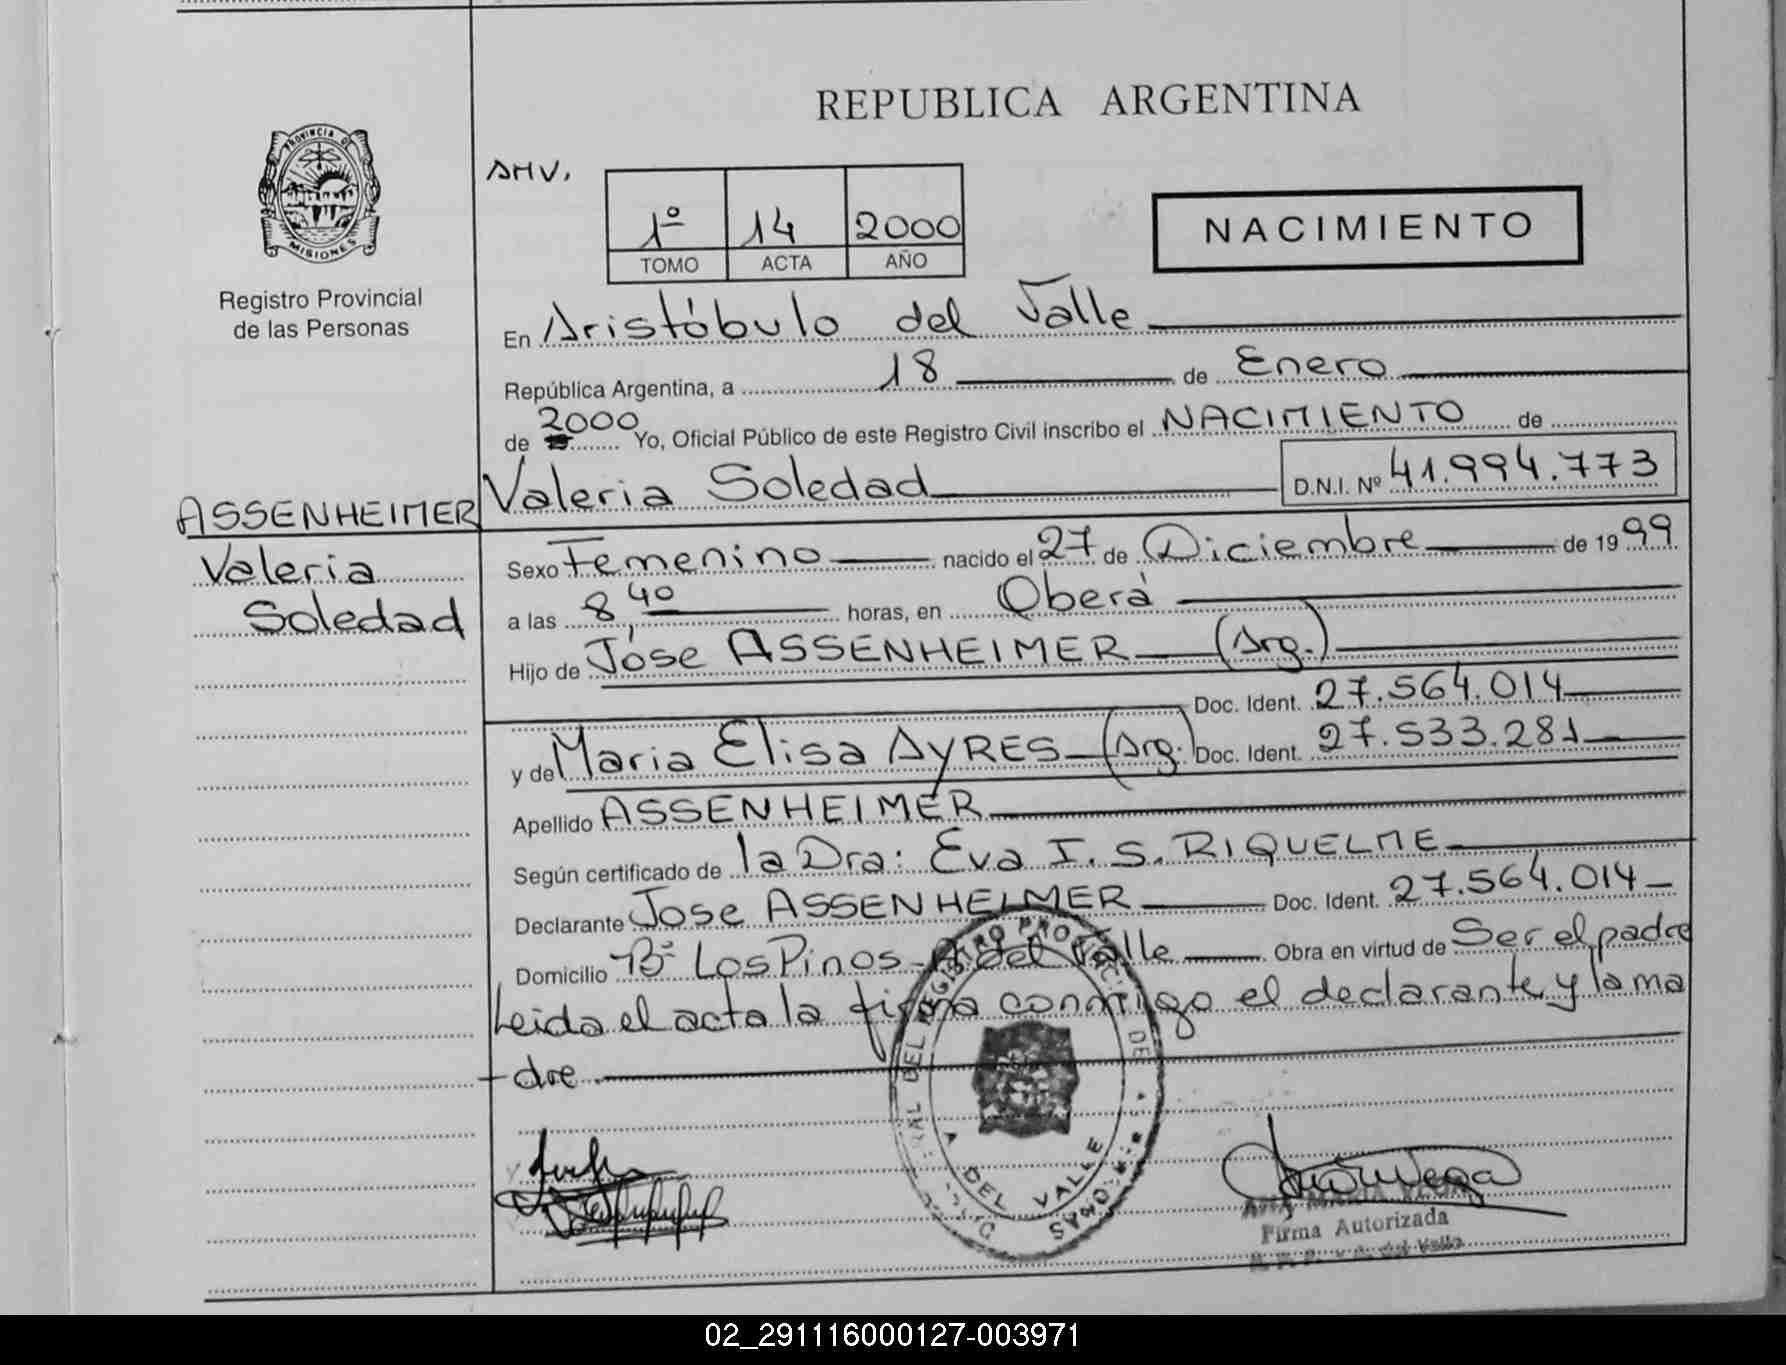 REPUBLICA ARGENTINA
PROVINCIA D
MISIONES
Registro Provincial
de las Personas
AHV.
1º 14 2000
TOMO ACTA AÑO
NACIMIENTO
En Aristóbulo del Valle
República Argentina, a 18 de Enero
de 2000 Yo, Oficial Público de este Registro Civil inscribo el NACIMIENTO de
Valeria Soledad D.N.I. Nº 41.994.773
ASSENHEIMER
Valeria
Soledad
Sexo Femenino nacido el 27 de Diciembre de 1999
a las 8,40 horas, en Oberá
Hijo de José ASSENHEIMER (Arg.)
Doc. Ident. 27.564.014
y de Maria Elisa AYRES (Arg.) Doc. Ident. 27.533.281
Apellido ASSENHEIMER
Según certificado de la Dra: Eva I. S. RIQUELME
Declarante Jose ASSENHEIMER Doc. Ident. 27.564.014
Domicilio Bº Los Pinos - A. del Valle Obra en virtud de Ser el padre
Leida el acta la firma conmigo el declarante y la ma
dre
A. DEL VALLE
ANA MARIA VEGA
Firma Autorizada
A. del Valle
02_291116000127-003971